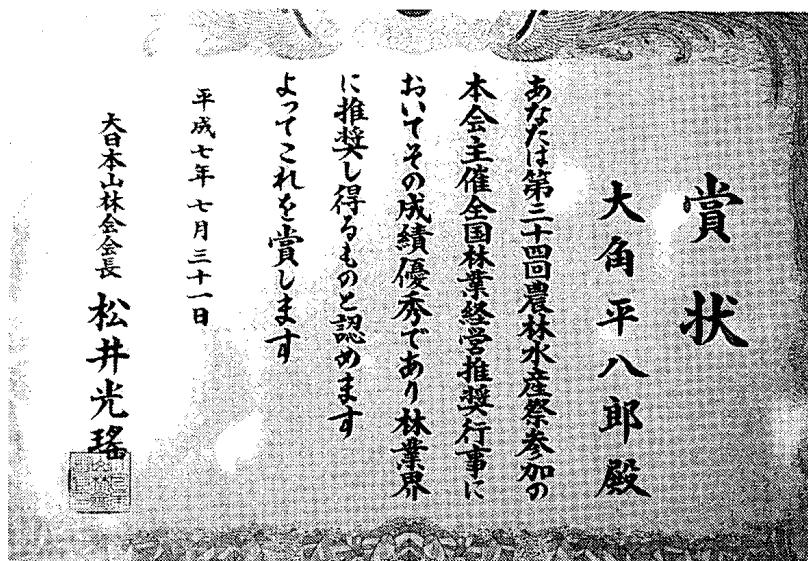 賞状
大角平八郎殿
あなたは第三十四回農林水産祭参加の
本会主催全国林業経営推奨行事に
おいてその成績優秀であり林業界
に推奨し得るものと認めます
よってこれを賞します
平成七年七月三十一日
大日本山林会会長 松井光瑤